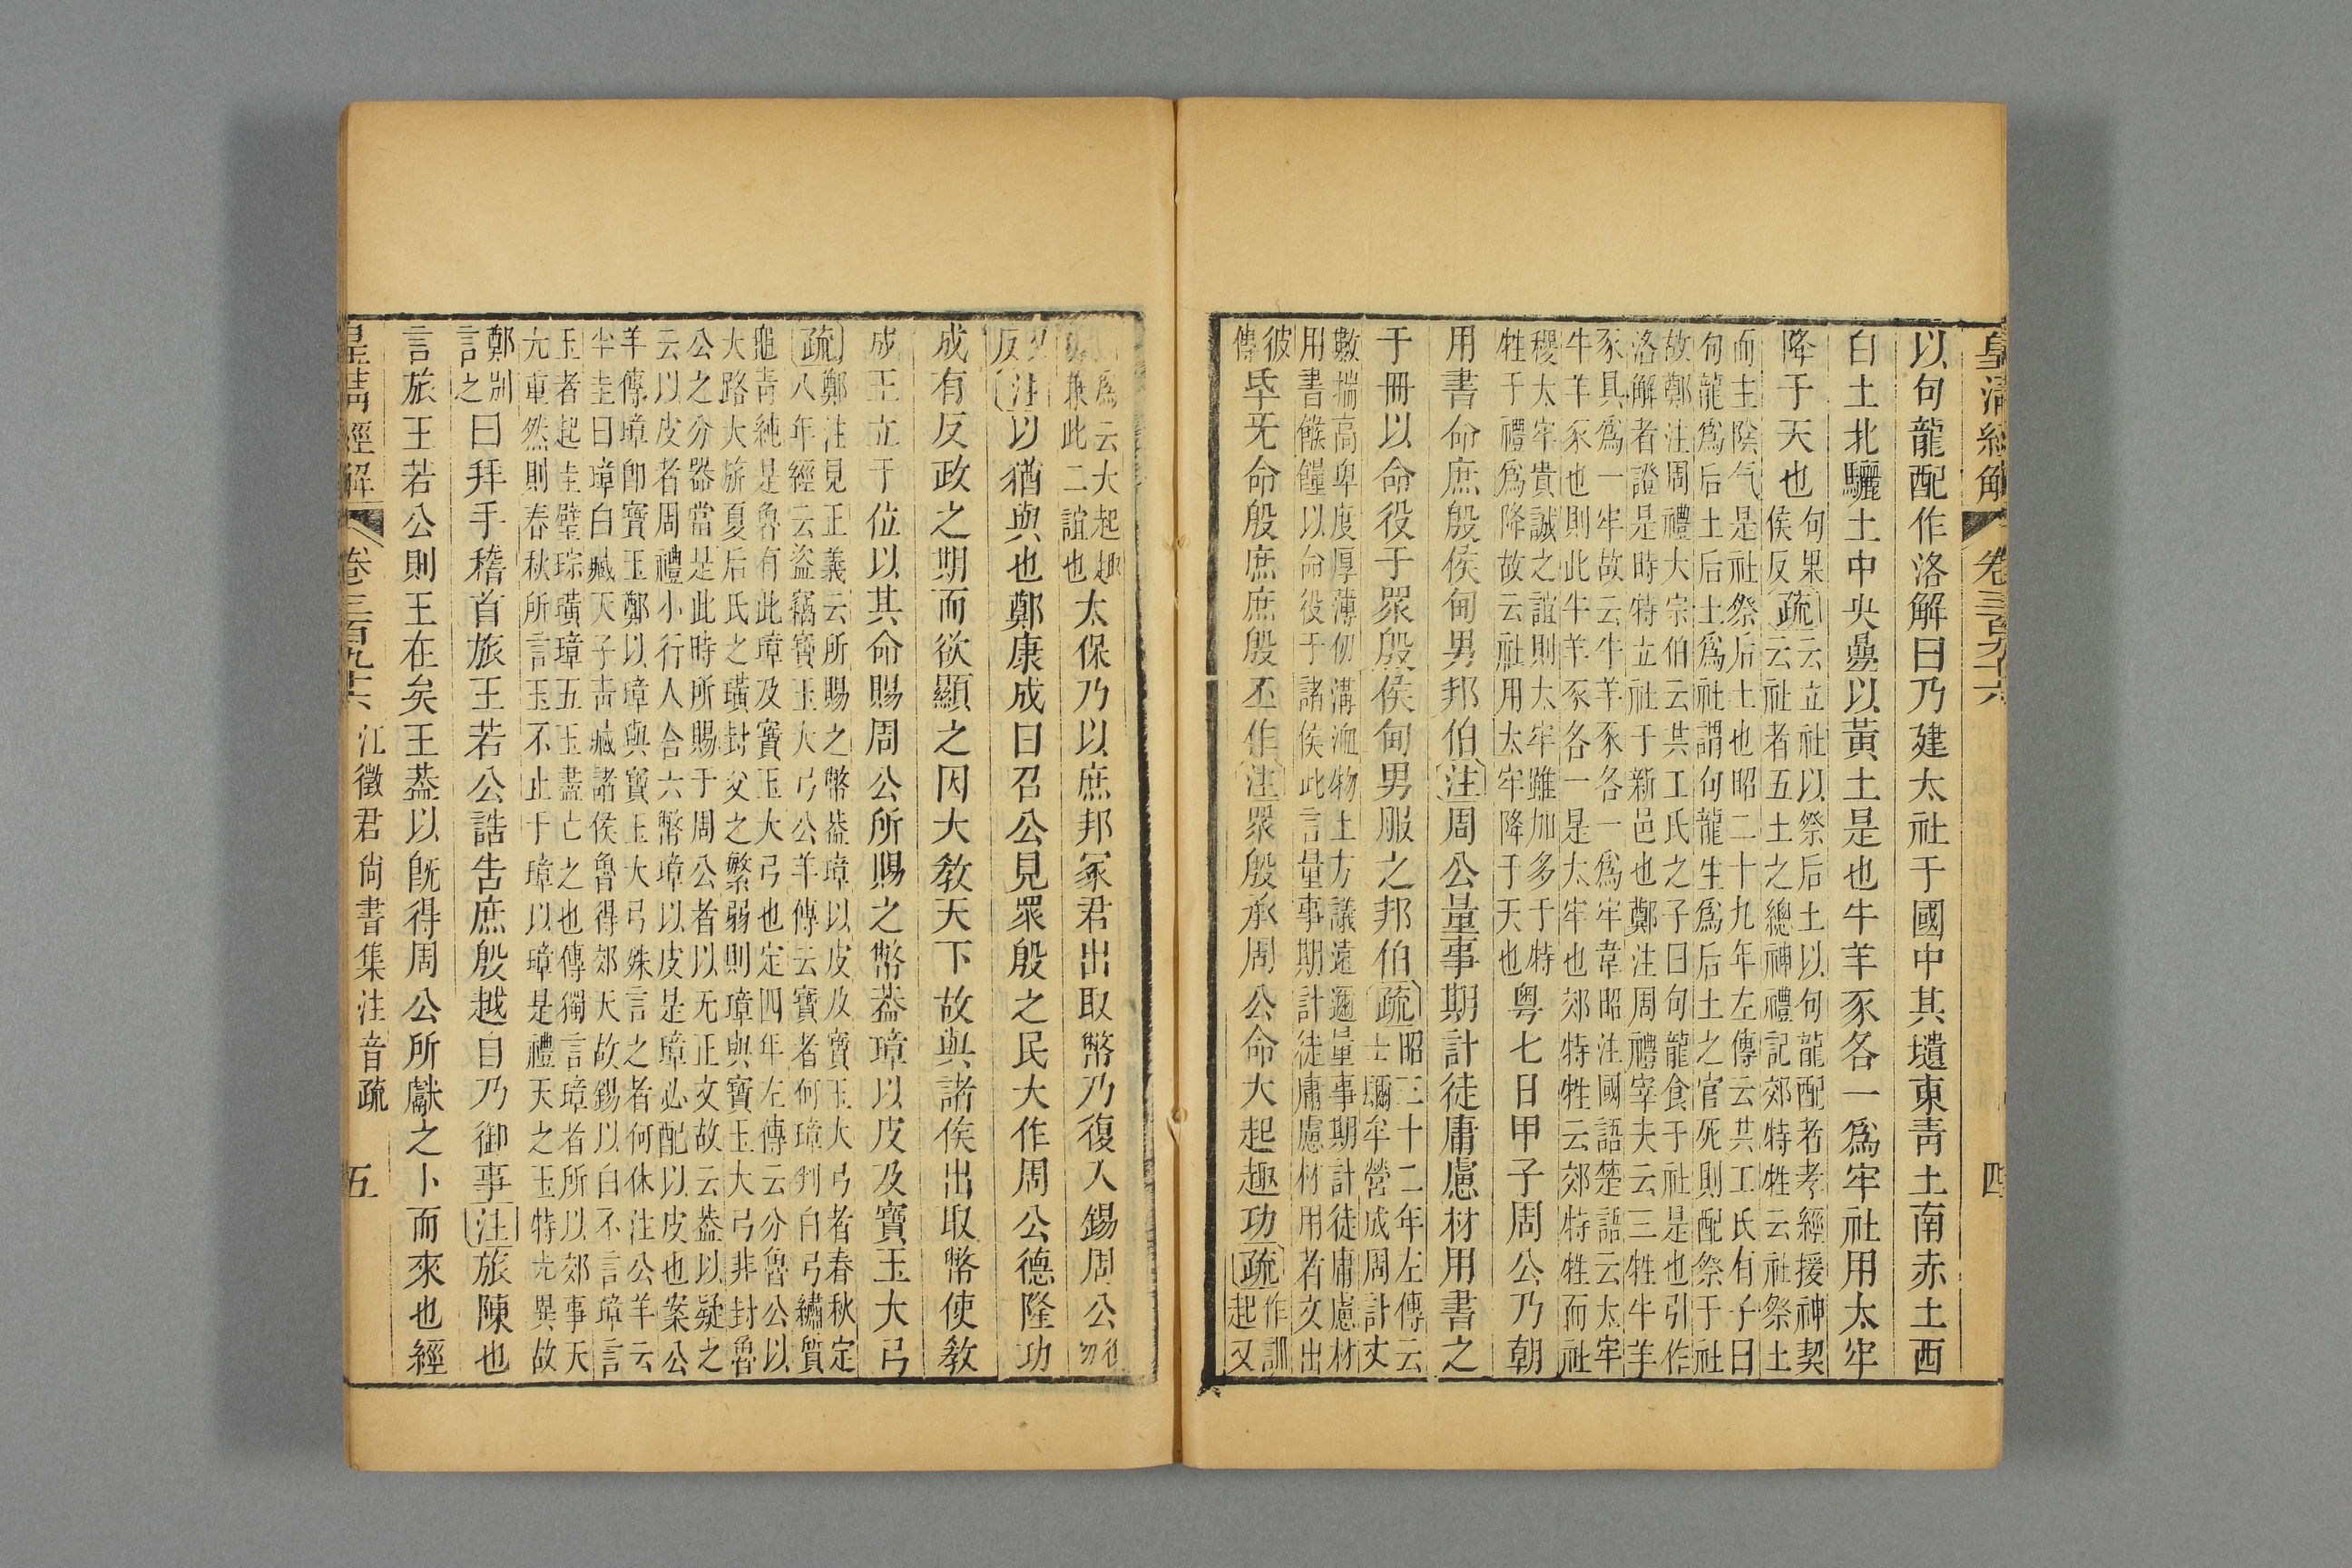 皇清經解 卷三百九十六 四
以句龍配作洛解曰乃建太社于國中其壝東青土南赤土西
白土北驪土中央亹以黃土是也牛羊豕各一爲牢社用太牢
降于天也
句果
侯反
疏
云立社以祭后土以句龍配者孝經援神契
云社者五土之總神禮記郊特牲云社祭土
而主陰气是社祭后土也昭二十九年左傳云共工氏有子曰
句龍爲后土后土爲社謂句龍生爲后土之官死則配祭于社
故鄭注周禮大宗伯云共工氏之子曰句龍食于社是也引作
洛解者證是時特立社于新邑也鄭注周禮宰夫云三牲牛羊
豕具爲一牢故云牛羊豕各一爲牢韋昭注國語楚語云太牢
牛羊豕也則此牛羊豕各一是太牢也郊特牲云郊特牲而社
稷太牢貴誠之誼則太牢雖加多于特
牲于禮爲降故云社用太牢降于天也
粤七日甲子周公乃朝
用書命庶殷侯甸男邦伯注周公量事期計徒庸慮材用書之
于冊以命役于眾殷侯甸男服之邦伯疏
昭三十二年左傳云
士彌牟營成周計丈
數揣高卑度厚薄仞溝洫物土方議遠邇量事期計徒庸慮材
用書餱饉以命役于諸侯此言量事期計徒庸慮材用者文出
彼
傳
𠂹旡命殷庶庶殷丕作注眾殷承周公命大起趣功疏
作訓
起又
爲云大起趣
兼此二誼也
太保乃以庶邦冢君出取幣乃復入錫周公
反
注以猶與也鄭康成曰召公見眾殷之民大作周公德隆功
成有反政之期而欲顯之因大教天下故與諸侯出取幣使教
成王立于位以其命賜周公所賜之幣葢璋以皮及寶玉大弓
疏
鄭注見正義云所賜之幣葢璋以皮及寶玉大弓者春秋定
八年經云盜竊寶玉大弓公羊傳云寶者何璋判白弓繡質
龜青純是魯有此璋及寶玉大弓也定四年左傳云分魯公以
大路大旂夏后氏之璜封父之繁弱則璋與寶玉大弓非封魯
公之分器當是此時所賜于周公者以无正文故云葢以疑之
云以皮者周禮小行人合六幣璋以皮是璋必配以皮也案公
羊傳璋卽寶玉鄭以璋與寶玉大弓殊言之者何休注公羊云
半圭曰璋白臧天子青臧諸侯魯得郊天故錫以白不言璋言
玉者起圭璧琮璜璋五玉盡亡之也傳獨言璋者所以郊事天
尤重然則春秋所言玉不止于璋以璋是禮天之玉特尤異故
鄭別
言之
曰拜手稽首旅王若公誥告庶殷越自乃御事注旅陳也
言旅王若公則王在矣王葢以旣得周公所獻之卜而來也經
皇清經解 卷三百九十六 江徵君尚書集注音疏 五